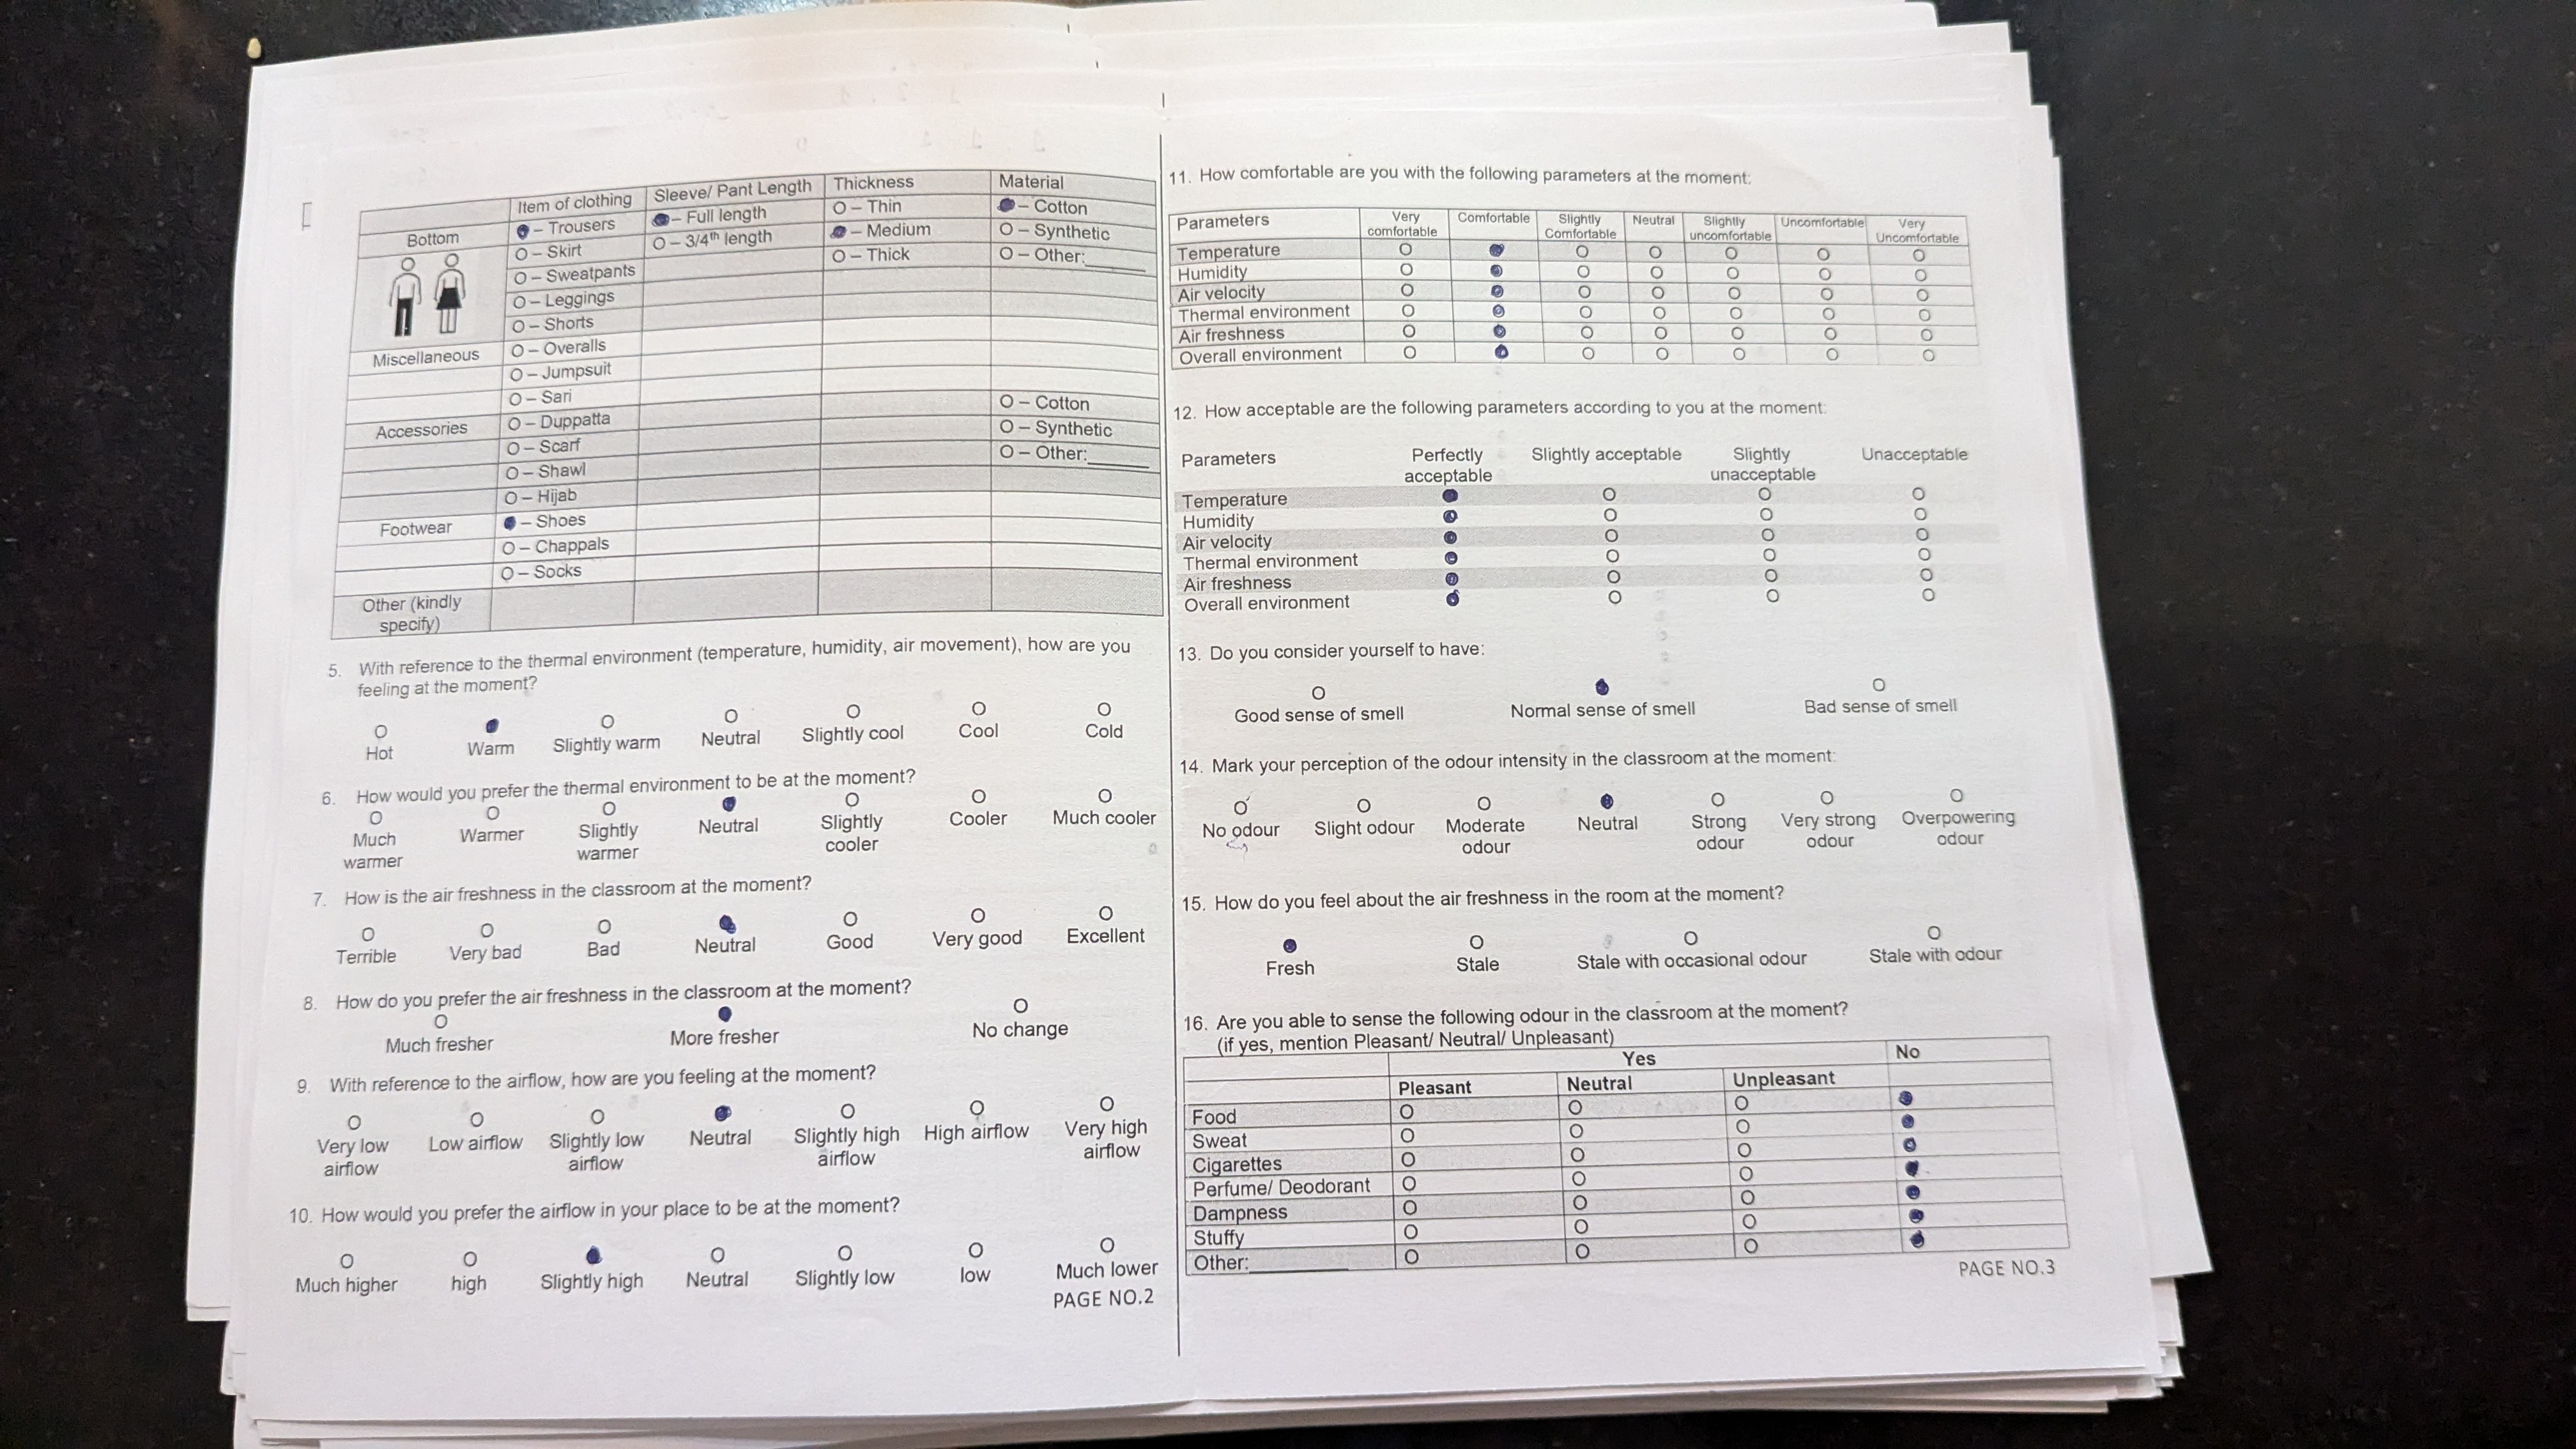 Item of clothing Sleeve/ Pant Length Thickness Material
Bottom
– Trousers – Full length O – Thin – Cotton
O – Skirt O – 3/4th length – Medium O – Synthetic
O – Sweatpants O – Thick O – Other:______
O – Leggings
O – Shorts
Miscellaneous O – Overalls
O – Jumpsuit
O – Sari
Accessories O – Duppatta O – Cotton
O – Scarf O – Synthetic
O – Shawl O – Other:______
O – Hijab
Footwear – Shoes
O – Chappals
O – Socks
Other (kindly
specify)
5. With reference to the thermal environment (temperature, humidity, air movement), how are you
feeling at the moment?
Hot Warm Slightly warm Neutral Slightly cool Cool Cold
6. How would you prefer the thermal environment to be at the moment?
Much Warmer Slightly Neutral Slightly Cooler Much cooler
warmer warmer cooler
7. How is the air freshness in the classroom at the moment?
Terrible Very bad Bad Neutral Good Very good Excellent
8. How do you prefer the air freshness in the classroom at the moment?
Much fresher More fresher No change
9. With reference to the airflow, how are you feeling at the moment?
Very low Low airflow Slightly low Neutral Slightly high High airflow Very high
airflow airflow airflow airflow
10. How would you prefer the airflow in your place to be at the moment?
Much higher high Slightly high Neutral Slightly low low Much lower
PAGE NO.2
11. How comfortable are you with the following parameters at the moment:
Parameters Very Comfortable Slightly Neutral Slightly Uncomfortable Very
comfortable Comfortable uncomfortable Uncomfortable
Temperature
Humidity
Air velocity
Thermal environment
Air freshness
Overall environment
12. How acceptable are the following parameters according to you at the moment:
Parameters Perfectly Slightly acceptable Slightly Unacceptable
acceptable unacceptable
Temperature
Humidity
Air velocity
Thermal environment
Air freshness
Overall environment
13. Do you consider yourself to have:
Good sense of smell Normal sense of smell Bad sense of smell
14. Mark your perception of the odour intensity in the classroom at the moment:
No odour Slight odour Moderate Neutral Strong Very strong Overpowering
odour odour odour odour
15. How do you feel about the air freshness in the room at the moment?
Fresh Stale Stale with occasional odour Stale with odour
16. Are you able to sense the following odour in the classroom at the moment?
(if yes, mention Pleasant/ Neutral/ Unpleasant)
Yes No
Pleasant Neutral Unpleasant
Food
Sweat
Cigarettes
Perfume/ Deodorant
Dampness
Stuffy
Other:__________
PAGE NO.3